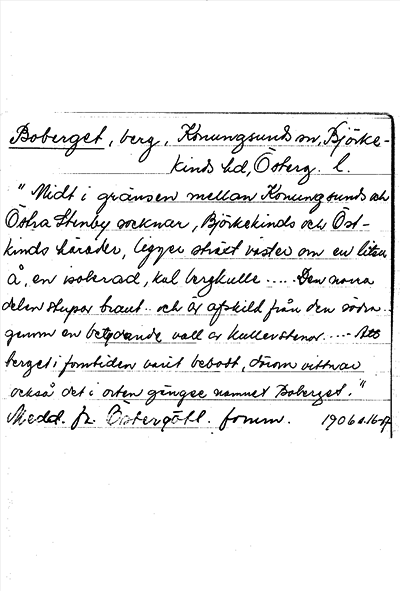 Boberget, berg, Konungsunds sn, Björke-
kinds hd, Österg. l.
"Midt i gränsen mellan Konungsunds och
Östra Stenby socknar, Björkekinds och Öst-
kinds härader, ligger strax väster om en liten
å, en isolerad, kal bergkulle .... Den norra
delen stupar brant .. och är afskild från den södra ..
genom en betydande vall av kullerstenar .... Att
berget i forntiden varit bebott, därom vittnar
också det i orten gängse namnet Boberget."
Medd. fr. Östergötl. fornm. 1906 s. 16-17